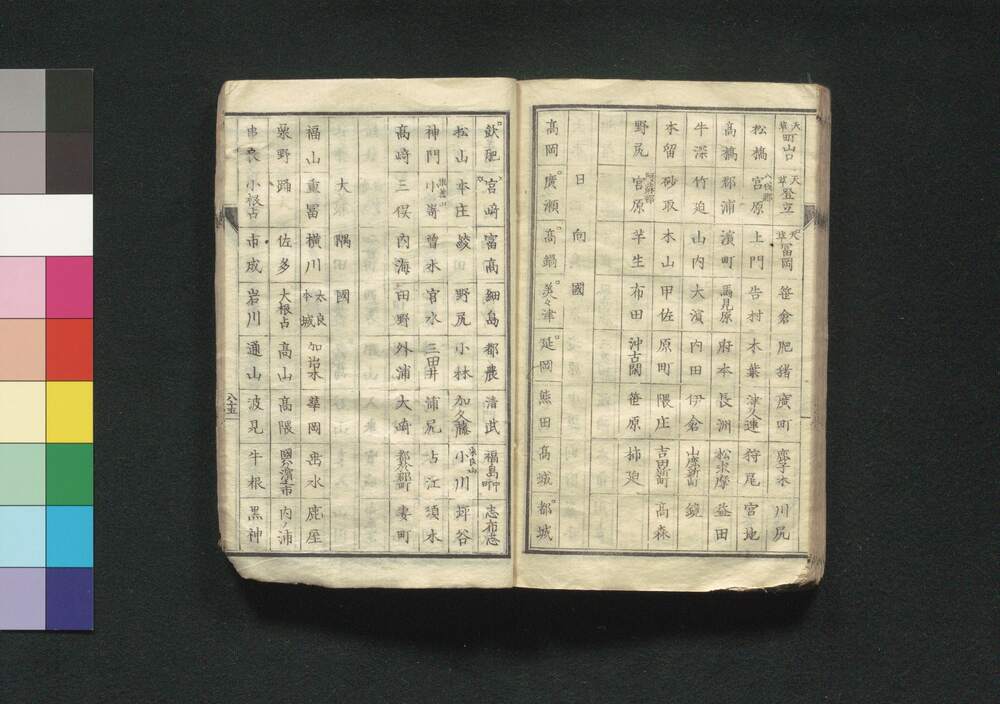 天草町山口 天草登立 天草冨岡 笹倉 肥猪 廣町 鹿子木 川尻
松橋 八代郡宮原 上門 告村 木葉 津久連 狩尾 宮地
高橋 郡浦 濱町 馬見原 府本 長洲 松求摩 益田
牛深 竹迫 山内 大濱 内田 伊倉 山鹿新町 鏡
本留 砂取 木山 甲佐 原町 隈庄 吉田新町 高森
野尻 阿蘇郡宮原 芋生 布田 沖古閑 笹原 柿迫
日向國
高岡 廣瀬 高鍋 美々津 延岡 熊田 高城 都城
飫肥 宮崎 富高 細島 都農 清武 福島町 志布志
松山 本庄 綾 野尻 小林 加久藤 小川 坪谷
神門 小嵜 曽木 宮水 三田井 浦尻 古江 須木
高崎 三俣 内海 田野 外浦 大崎 都於郡町 妻町
大隅國
福山 重冨 横川 本城 加治木 華岡 岳水 鹿屋
粟野 踊 佐多 大根占 高山 高隈 國分濱之市 内ノ浦
串良 小根占 市成 岩川 通山 波見 牛根 黒神
八十五